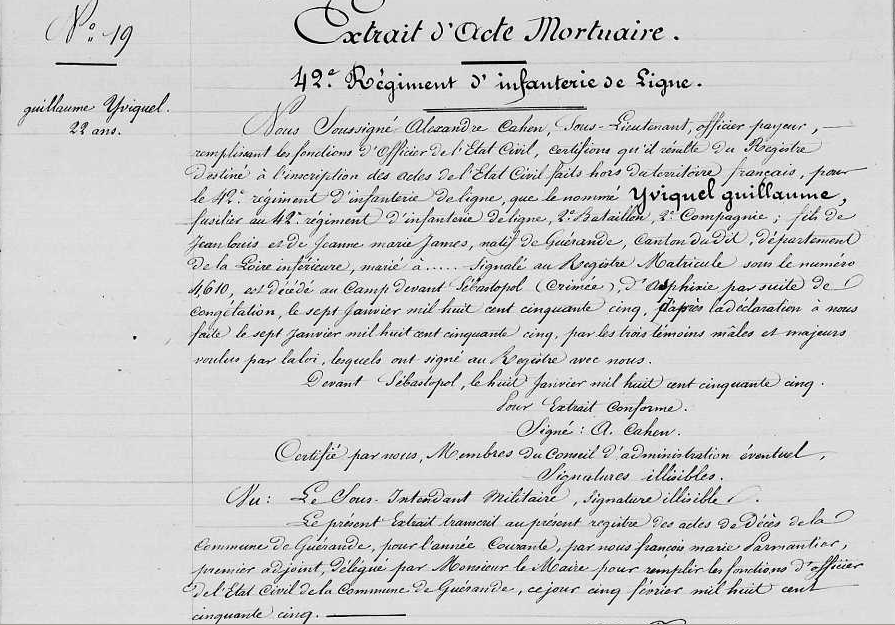 N° 19
Extrait d'Acte Mortuaire.
42e Régiment d'infanterie de Ligne.
guillaume Yviquel.
22 ans.
Nous Soussigné Alexandre Cahen, Sous-Lieutenant, officier payeur,
remplissant les fonctions d'Officier de l'Etat Civil, certifions qu'il résulte du Registre
destiné à l'inscription des actes de l'Etat Civil faits hors du territoire français, pour
le 42e régiment d'infanterie de ligne, que le nommé Yviquel guillaume,
fusilier au 42e régiment d'infanterie de ligne, 2e Bataillon, 2e Compagnie ; fils de
Jean louis et de Jeanne marie James, natif de Guérande, Canton du dit, département
de la Loire inférieure, marié à..... Signalé au Registre Matricule sous le numéro
4,610, est décédé au Camp devant Sébastopol (Crimée) d'Asphixie par suite de
congélation, le sept Janvier mil huit cent cinquante cinq, d'après la déclaration à nous
faite le sept Janvier mil huit cent cinquante cinq, par les trois témoins mâles et majeurs
voulus par la loi, lesquels ont signé au Registre avec nous.
Devant Sébastopol, le huit Janvier mil huit cent cinquante cinq.
Pour Extrait Conforme.
Signé : A. Cahen.
Certifié par nous, Membres du Conseil d'administration éventuel,
Signatures illisibles.
Vu : Le Sous-Intendant Militaire, signature illisible.
Le présent Extrait transcrit au présent registre des actes de Décès de la
Commune de Guérande, pour l'année Courante, par nous françois marie Parmantier,
premier adjoint, délégué par Monsieur le Maire pour remplir les fonctions d'officier
de l'Etat Civil de la Commune de Guérande, ce jour cinq février mil huit cent
cinquante cinq.